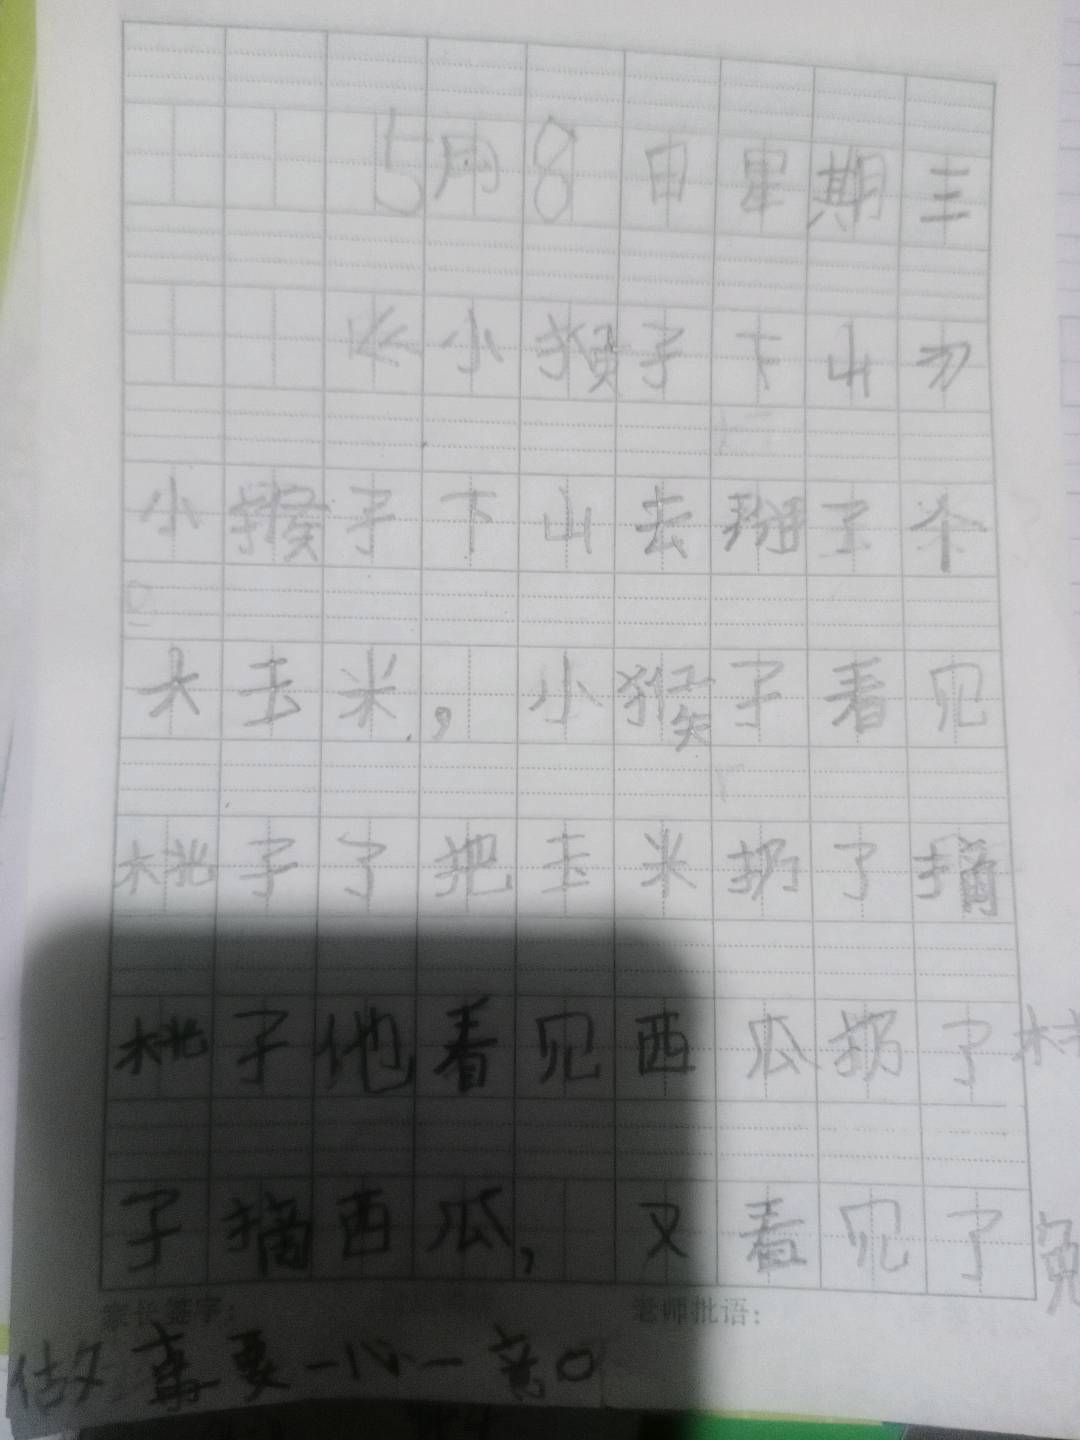 5月8日星期三
小猴子下山
小猴子下山去掰了个
大玉米,小猴子看见
桃子了把玉米扔了摘
桃子他看见西瓜扔了桃
子摘西瓜,又看见了兔
家长签字: 老师批语:
做事要一心一意。